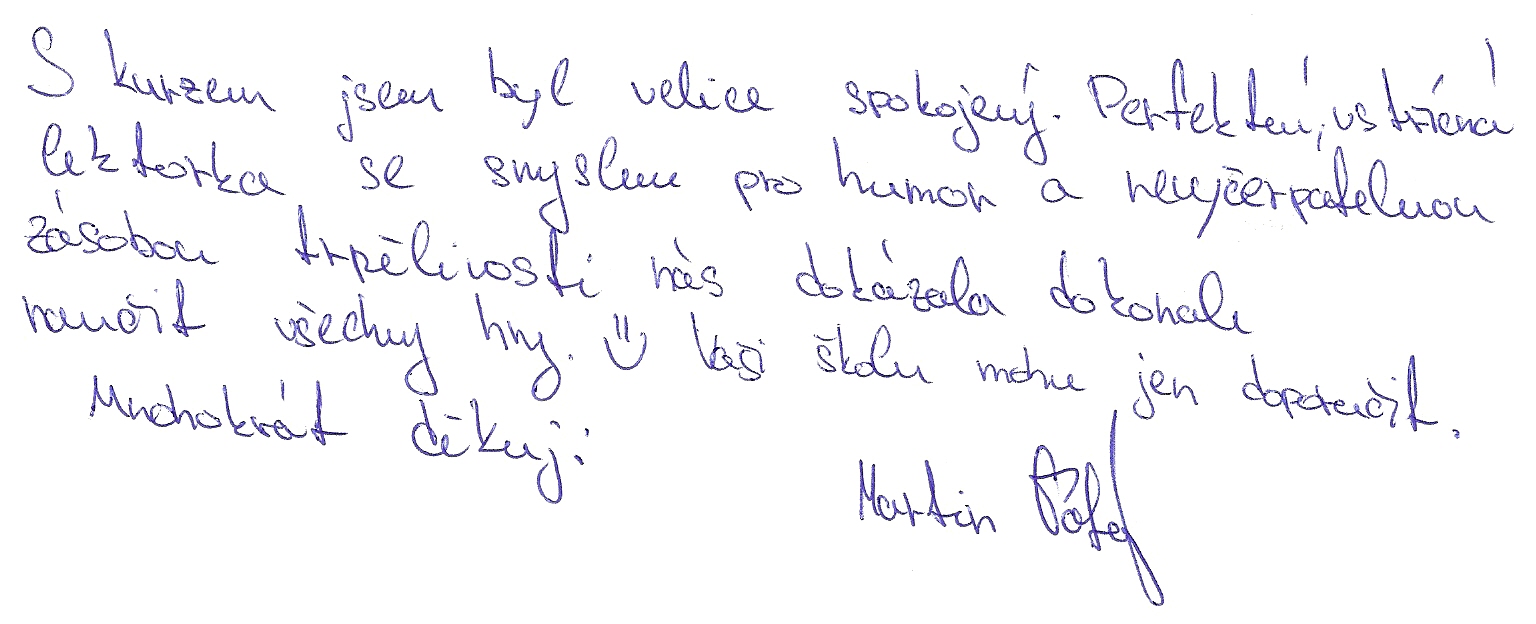 S kurzem jsem byl velice spokojený. Perfektní, vstřícná
lektorka se smyslem pro humor a nevyčerpatelnou
zásobou trpělivosti nás dokázala dokonale
naučit všechny hry. Vaši školu mohu jen doporučit.
Mnohokrát děkuji
Martin